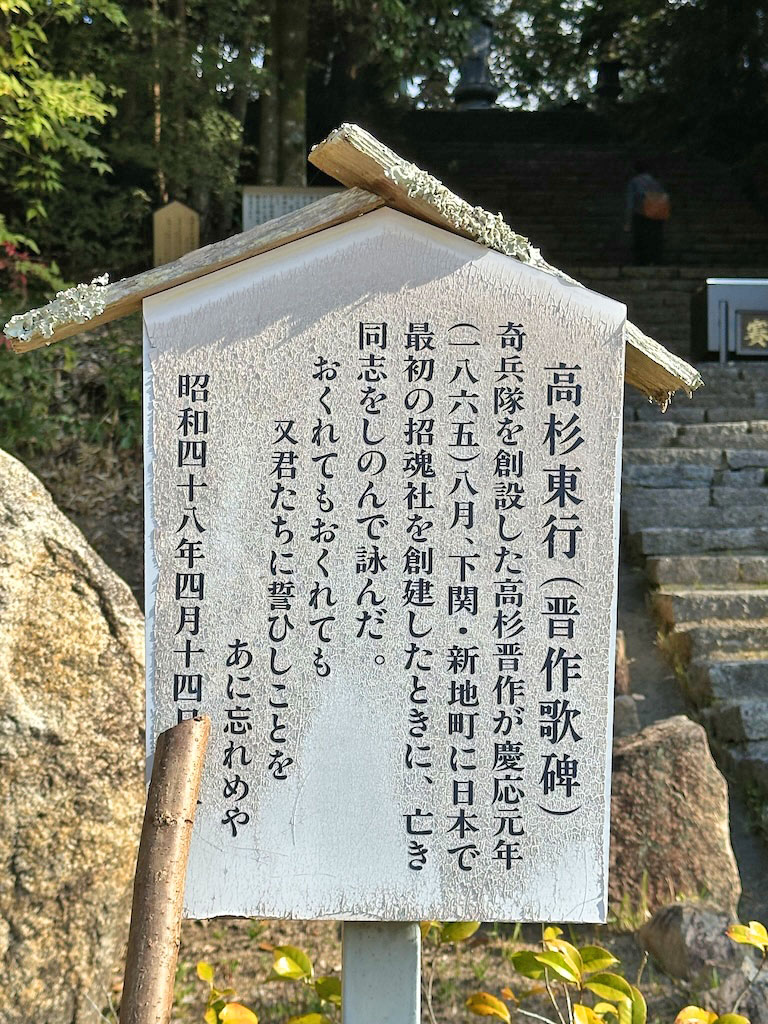 高杉東行（晋作歌碑）
奇兵隊を創設した高杉晋作が慶応元年
（一八六五）八月、下関・新地町に日本で
最初の招魂社を創建したときに、亡き
同志をしのんで詠んだ。
おくれてもおくれても
又君たちに誓ひしことを
あに忘れめや
昭和四十八年四月十四日